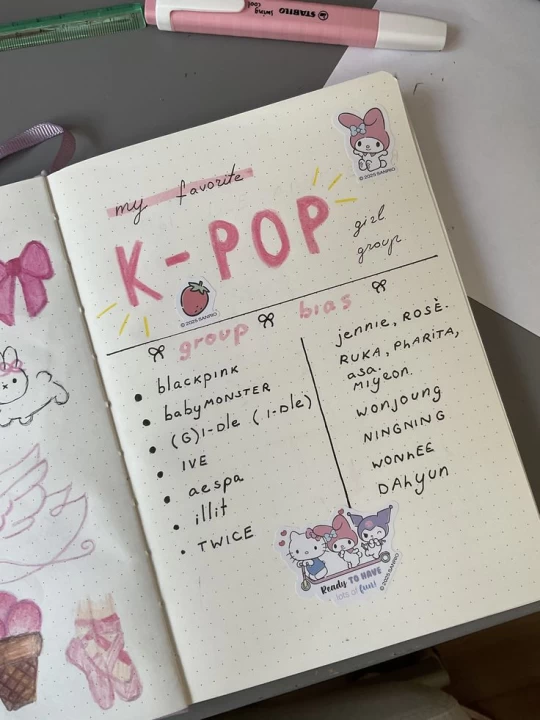 STABILO
swing
cool
© 2025 SANRIO
my favorite
K-POP
girl
group
© 2025 SANRIO
group
bias
blackpink
babyMONSTER
(G)I-Dle (I-Dle)
IVE
aespa
illit
TWICE
jennie, ROSÈ.
RUKA, PhARITA,
asa,
Miyeon.
wonjoung
NINGNING
WONhEE
DAhyun
Ready TO HAVE
lots of fun!
© 2025 SANRIO